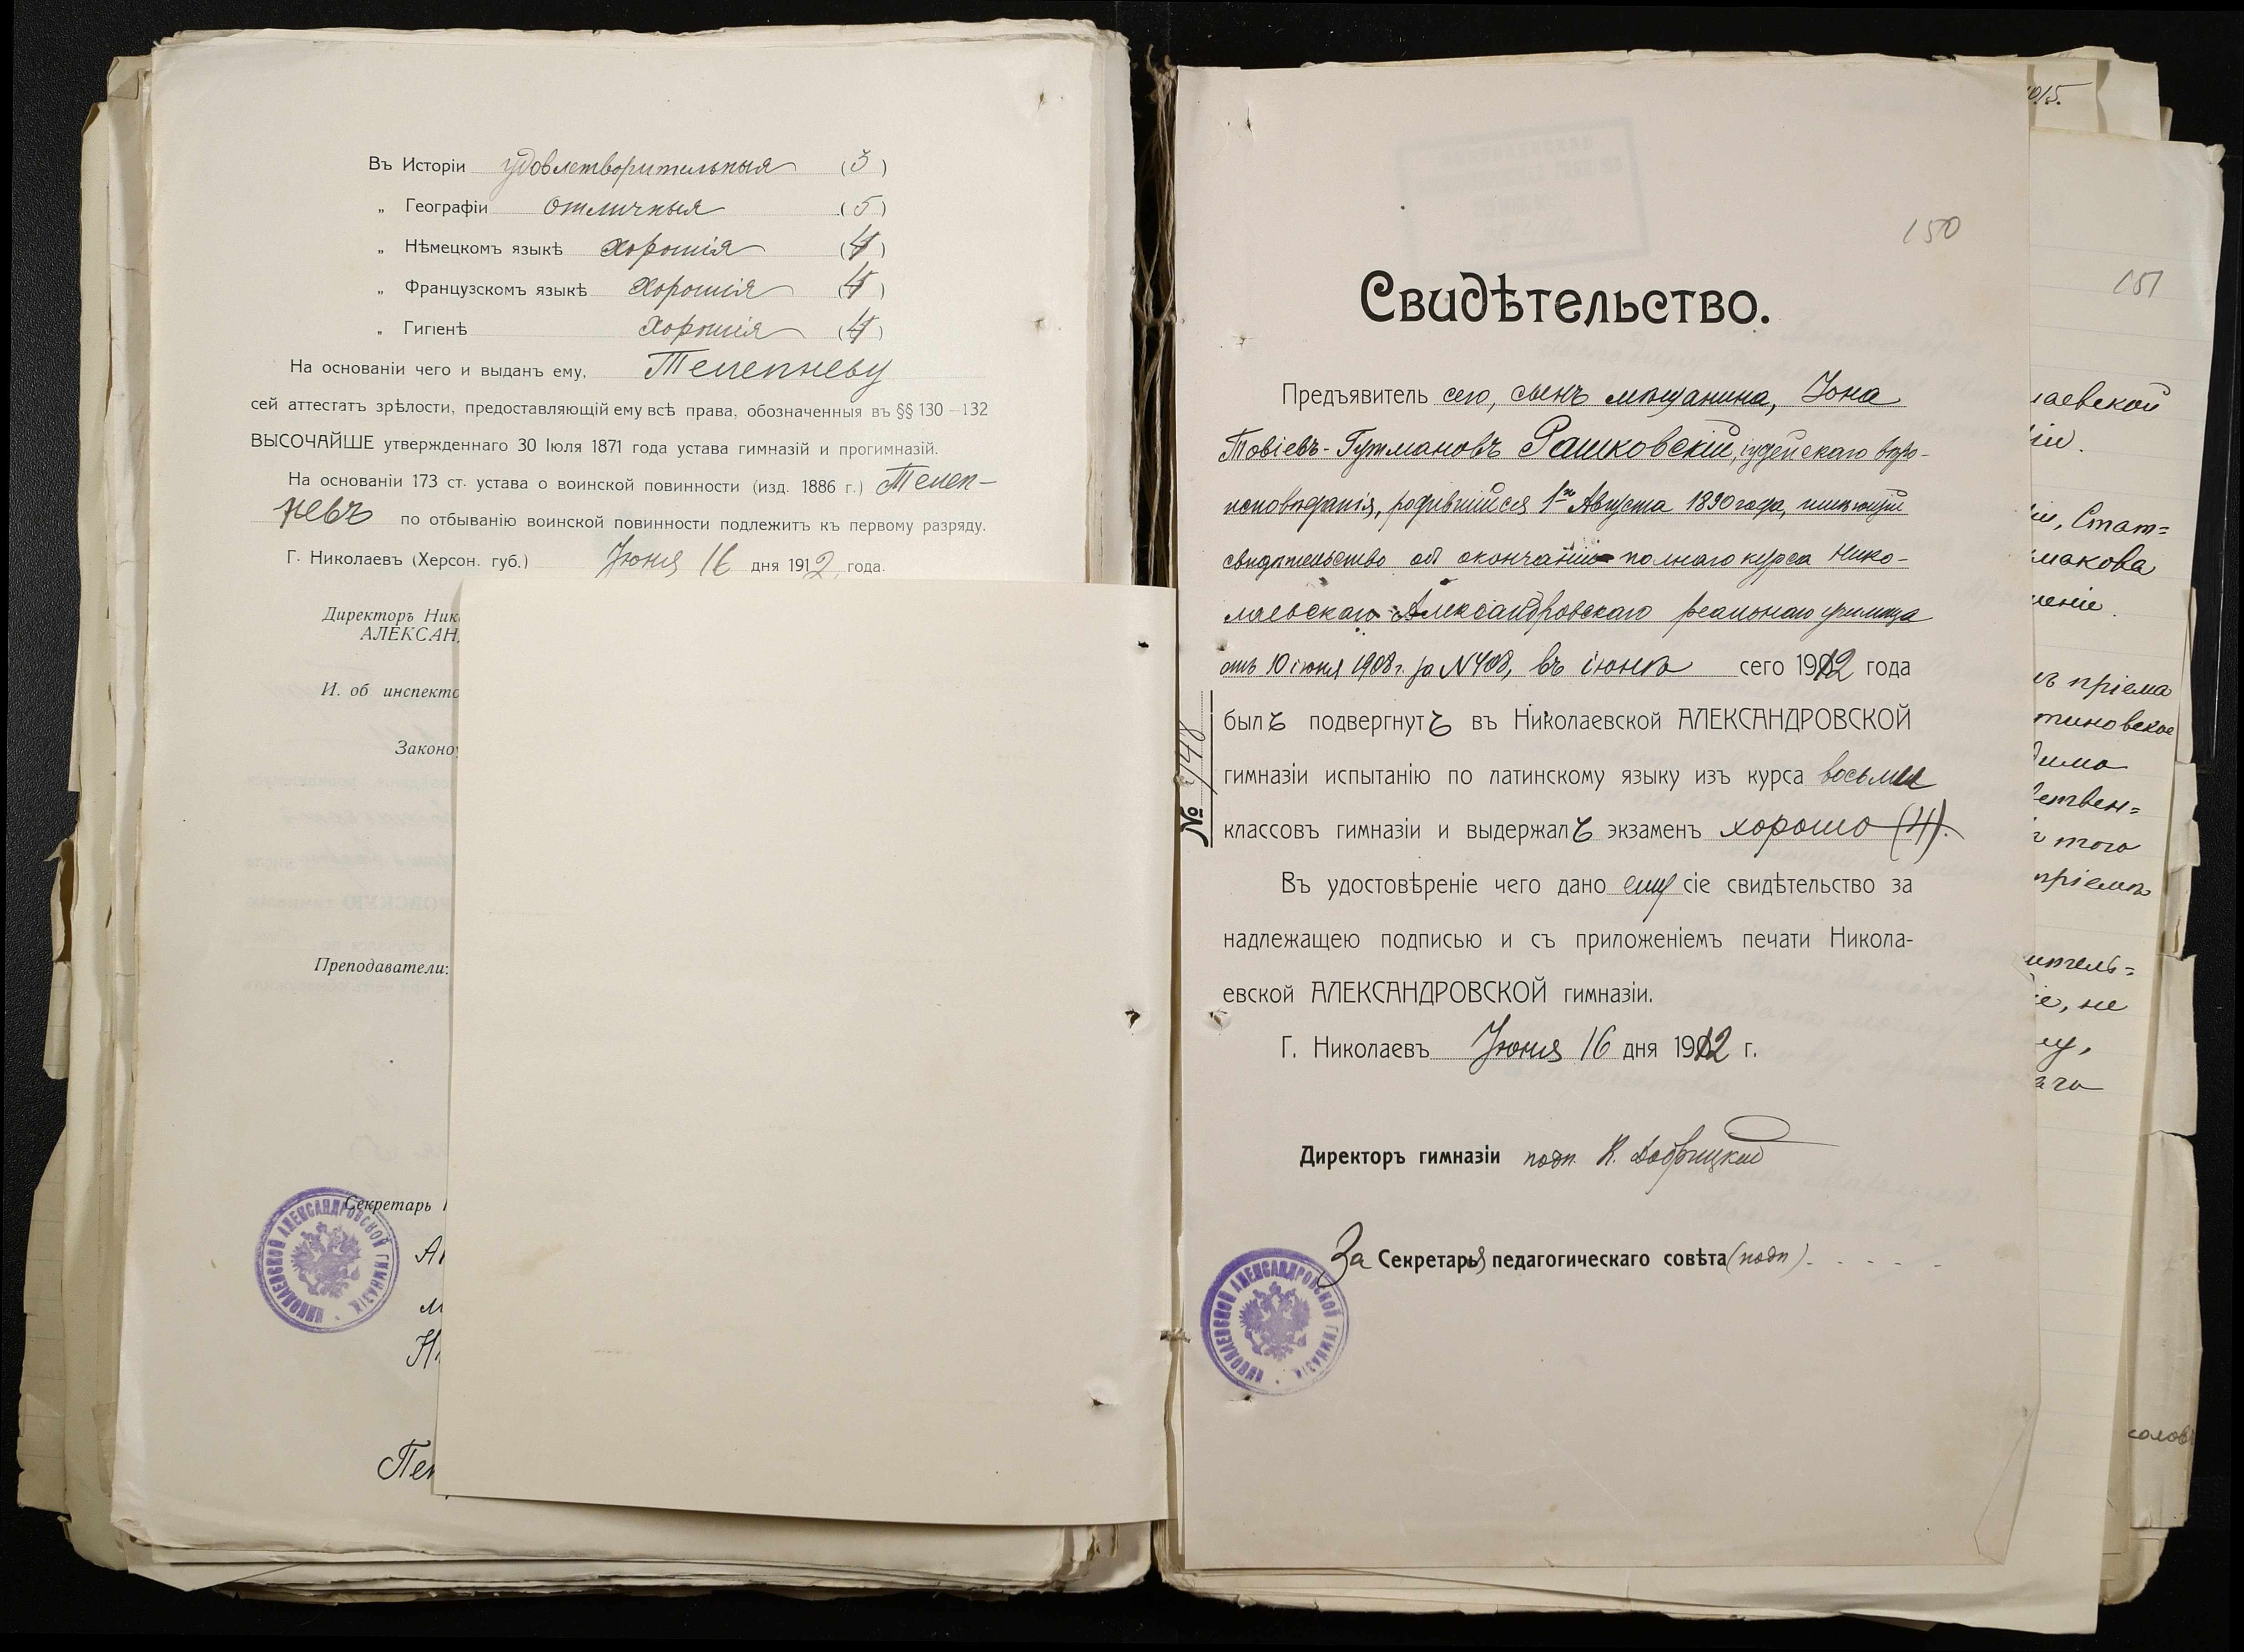 Въ Исторіи удовлетворительныя (3)
„ Географіи отличныя (5)
„ Нѣмецкомъ языкѣ хорошія (4)
„ Французскомъ языкѣ хорошія (4)
„ Гигіенѣ хорошія (4)
На основаніи чего и выданъ ему, Телепневу
сей аттестатъ зрѣлости, предоставляющій ему всѣ права, обозначенныя въ §§ 130—132
ВЫСОЧАЙШЕ утвержденнаго 30 Іюля 1871 года устава гимназій и прогимназій.
На основаніи 173 ст. устава о воинской повинности (изд. 1886 г.) Телеп-
невъ по отбыванію воинской повинности подлежитъ къ первому разряду.
Г. Николаевъ (Херсон. губ.) Іюня 16 дня 1912 года.
Директоръ Ник
АЛЕКСАН
И. об инспекто
Законо
Преподаватели:
Секретарь
НИКОЛАЕВСКОЙ АЛЕКСАНДРОВСКОЙ ГИМНАЗІИ
150
Свидѣтельство.
Предъявитель сего, сынъ мѣщанина, Іона
Товіевъ-Гутмановъ Рашковскій, іудейскаго вѣро-
исповѣданія, родившійся 1го Августа 1890 года, имѣющій
свидѣтельство объ окончаніи полнаго курса Нико-
лаевскаго Александровскаго реальнаго училища
отъ 10 іюня 1908 г. за N 408, въ іюнѣ сего 1912 года
былъ подвергнутъ въ Николаевской АЛЕКСАНДРОВСКОЙ
гимназіи испытанію по латинскому языку изъ курса восьми
классовъ гимназіи и выдержалъ экзаменъ хорошо (4).
Въ удостовѣреніе чего дано ему сіе свидѣтельство за
надлежащею подписью и съ приложеніемъ печати Никола-
евской АЛЕКСАНДРОВСКОЙ гимназіи.
Г. Николаевъ Іюня 16 дня 1912 г.
Директоръ гимназіи подп. К. Добрицкій
За Секретаря педагогическаго совѣта (подп)
НИКОЛАЕВСКОЙ АЛЕКСАНДРОВСКОЙ ГИМНАЗІИ
№ 948
151
лаевской
іи.
Стат=
макова
пріема
тиновское
ствен=
того
пріемъ
не